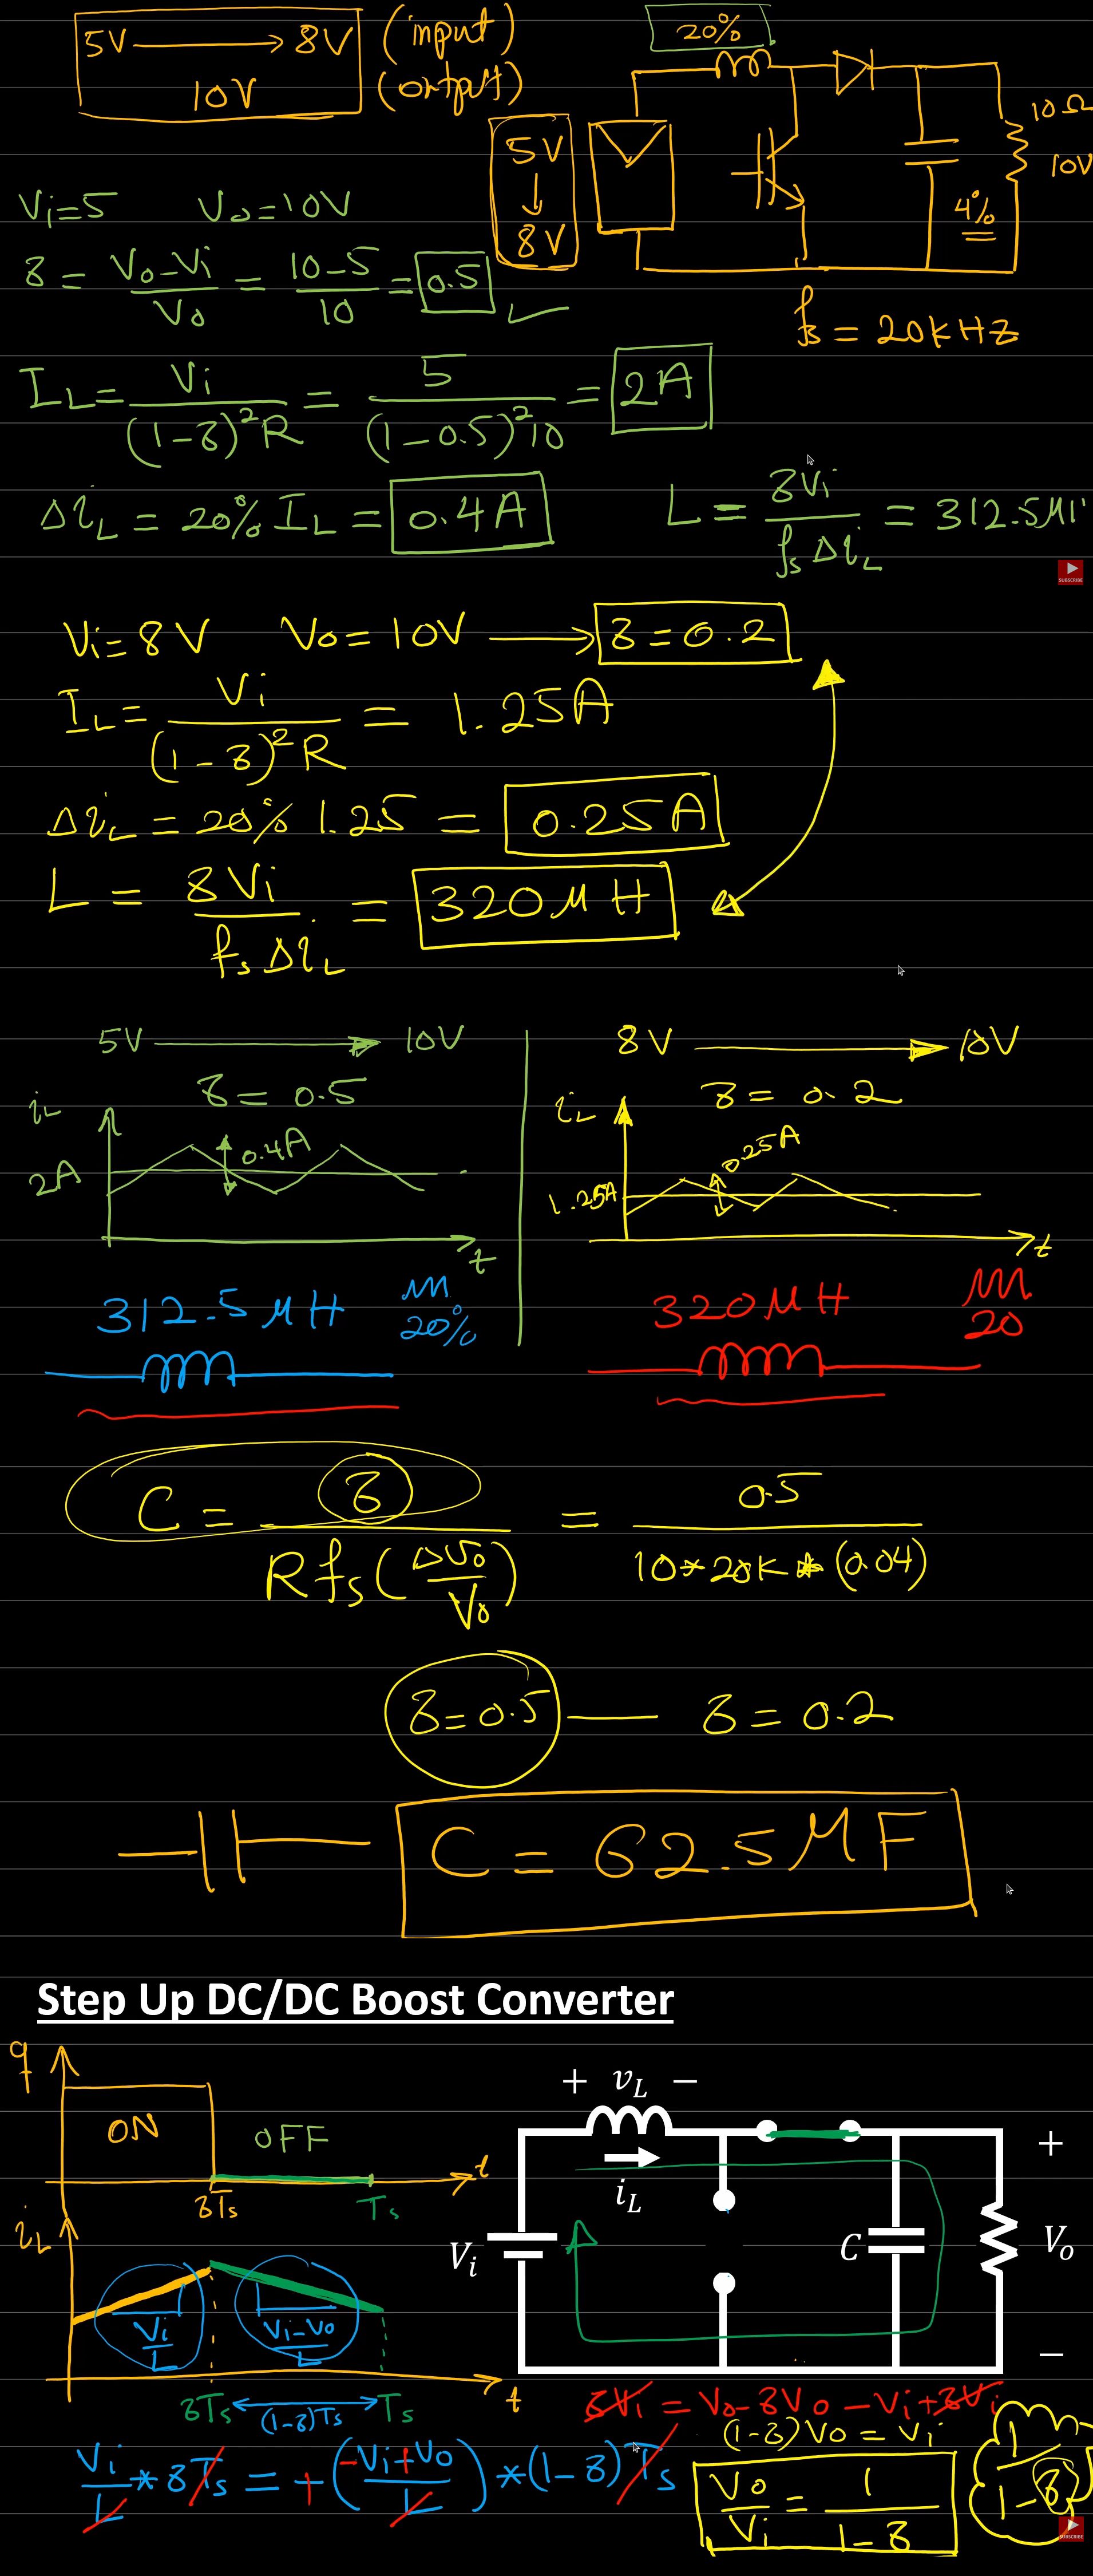 5V → 8V (input)
10V (output)
20%
5V
↓
8V
10Ω
10V
4%
fs = 20kHz
Vi=5 Vo=10V
δ = (Vo-Vi)/Vo = (10-5)/10 = 0.5 ✓
IL = Vi/((1-δ)²R) = 5/((1-0.5)²10) = 2A
ΔiL = 20% IL = 0.4A
L = δVi/(fs ΔiL) = 312.5μH
SUBSCRIBE
Vi=8V Vo=10V → δ=0.2
IL = Vi/((1-δ)²R) = 1.25A
ΔiL = 20% 1.25 = 0.25A
L = δVi/(fs ΔiL) = 320μH
5V → 10V
δ = 0.5
iL
0.4A
2A
t
8V → 10V
δ = 0.2
iL
0.25A
1.25A
t
312.5μH
20%
320μH
20
C = δ/(R fs (ΔVo/Vo)) = 0.5/(10*20K*(0.04))
δ=0.5 — δ=0.2
C = 62.5μF
Step Up DC/DC Boost Converter
q
ON
OFF
t
δTs
Ts
iL
Vi/L
(Vi-Vo)/L
t
δTs
(1-δ)Ts
Ts
+ vL −
iL
Vi
C
+
Vo
−
δVi = Vo-δVo-Vi+δVi
(1-δ)Vo = Vi
Vi/L * δTs = +((-Vi+Vo)/L) * (1-δ)Ts
Vo/Vi = 1/(1-δ)
1/(1-δ)
SUBSCRIBE